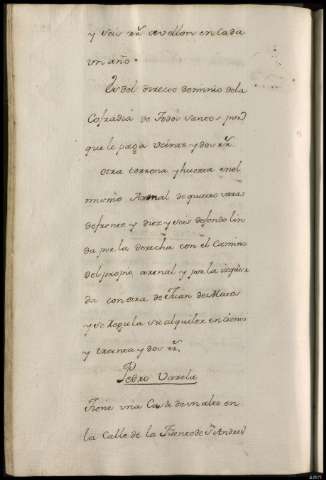 y seis rr. de vellon en Cada
un año.
Es del directo dominio dela
Cofradia de Todos Santos, por
que le paga veinte y dos rr.
Otra terrena y huerta enel
mismo Arenal de quatro varas
defrente, y diez y seis de fondo lin
da por la derecha con el Camino
del propio arenal y por la izquier
da con otra de Juan de Haro
y se Regula su alquiler en Ciento
y treinta y dos rr.
Pedro Varela
Tiene una Casa de un alto en
la Calle de la Fuente de Sn. Andres